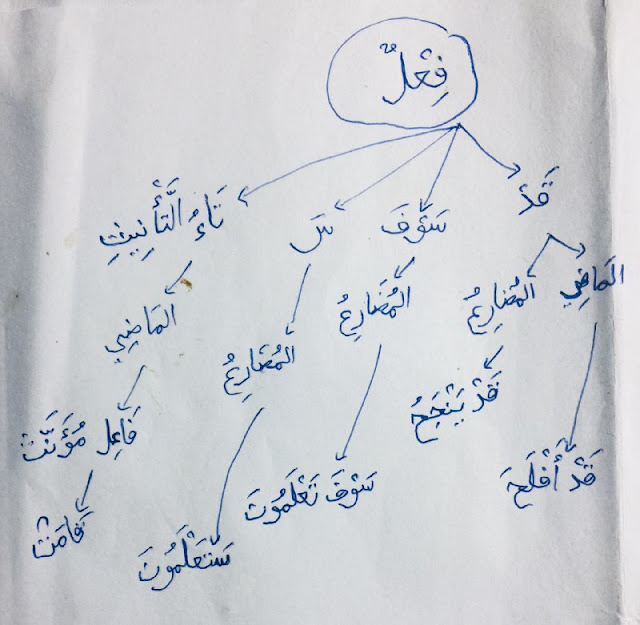 فِعْلٌ
قَدْ
سَوْفَ
سَ
تَاءُ التَّأْنِيثِ
المَاضِي
المُضَارِعُ
المُضَارِعُ
المُضَارِعُ
المَاضِي
قَدْ يَنْجَحُ
فَاعِل مُؤَنَّث
قَدْ أَفْلَحَ
سَوْفَ تَعْلَمُونَ
سَتَعْلَمُونَ
قَامَتْ